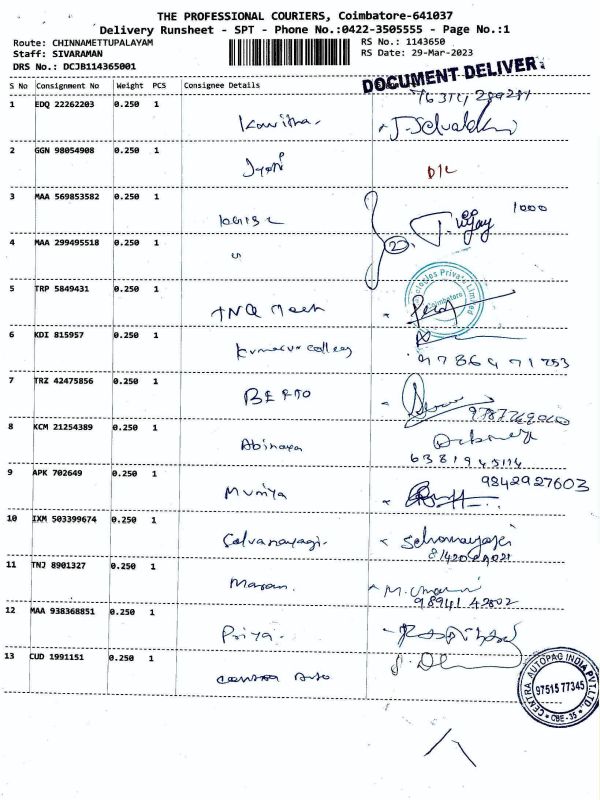 THE PROFESSIONAL COURIERS, Coimbatore-641037
Delivery Runsheet - SPT - Phone No.:0422-3505555 - Page No.:1
Route: CHINNAMETTUPALAYAM RS No.: 1143650
Staff: SIVARAMAN RS Date: 29-Mar-2023
DRS No.: DCJB114365001
DOCUMENT DELIVER
S No Consignment No Weight PCS Consignee Details
1 EDQ 22262203 0.250 1
Kavitha.
2 GGN 98054908 0.250 1
Jyoti D/L
3 MAA 569853582 0.250 1
1000
4 MAA 299495518 0.250 1
2 T. Vijay
5 TRP 5849431 0.250 1
TNQ Tech
Private Limited
Coimbatore
6 KDI 815957 0.250 1
Kumaruru college
9786971753
7 TRZ 42475856 0.250 1
8 KCM 21254389 0.250 1
Abinaya
9 APK 702649 0.250 1
Muniya
9842927603
10 IXM 503399674 0.250 1
Selvanayagi.
11 TNJ 8901327 0.250 1
Maran.
9894142802
12 MAA 938368851 0.250 1
Priya.
13 CUD 1991151 0.250 1
Centra Auto
CENTRA AUTOPAG INDIA PVT.LTD.
97515 77345
CBE-35